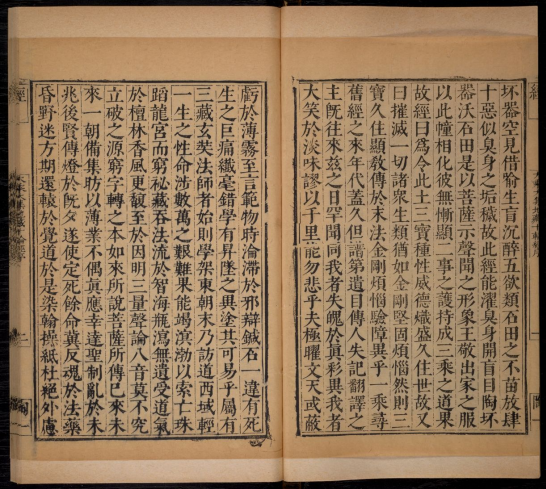 坏器空見借喻生盲沉醉五欲類石田之不苗放肆
十惡似臭身之垢穢故此經能濯臭身開盲目陶坏
器沃石田是以菩薩示聲聞之形象王敬出家之服
以此幢相化彼無慚顯二事之護持成三乘之道果
故經曰爲令此土三寶種性威德熾盛久住世故又
曰摧滅一切諸衆生類猶如金剛堅固煩惱然則三
寶久住顯敎傳於末法金剛煩惱障異乎一乘尋
舊經之來年代蓋久但譜第遺目傳人失記翻譯之
主旣往來茲之日罕聞同我者失魄於眞彩異我者
大笑於淡味謬以千里能勿悲乎夫極曜文天或蔽
虧於薄霧至言範物時淪滯於邪辯鍼石一違有死
生之巨痛纖毫錯學有昇墜之異塗其可易乎屬有
三藏玄奘法師者始則學架東朝末乃訪道西域輕
一生之性命涉數萬之艱難果能竭溟渤以索亡珠
蹈龍宮而窮秘藏吞法流於智海瓶瀉無遺受道氣
於檀林香風更馥至於因明三量聲論八音莫不究
立破之源窮字轉之本如來所說菩薩所傳已來未
來一朝備集昉以薄業不偶眞應幸達聖制亂於未
兆後賢傳燈於旣夕遂使定死餘命冀反魂於法藥
昏野迷方期還轅於覺道於是染翰操紙杜絕外慮